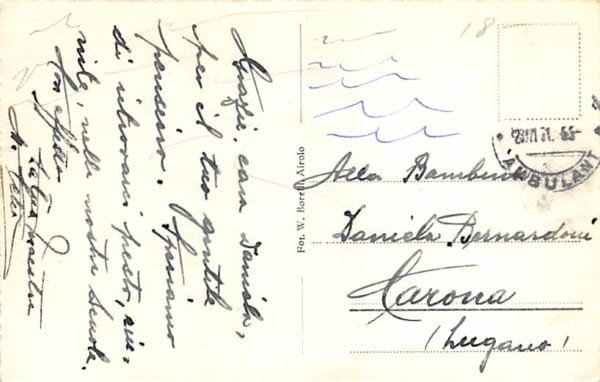 Grazie, cara Daniela,
per il tuo gentile
pensiero. Speriamo
di ritrovarci presto, riu-
nite, nella nostra Scuola.
Con affetto
La tua maestra
Fot. W. Borelli, Airolo
18
AMBULANT
Alla Bambina
Daniela Bernardoni
Carona
(Lugano)